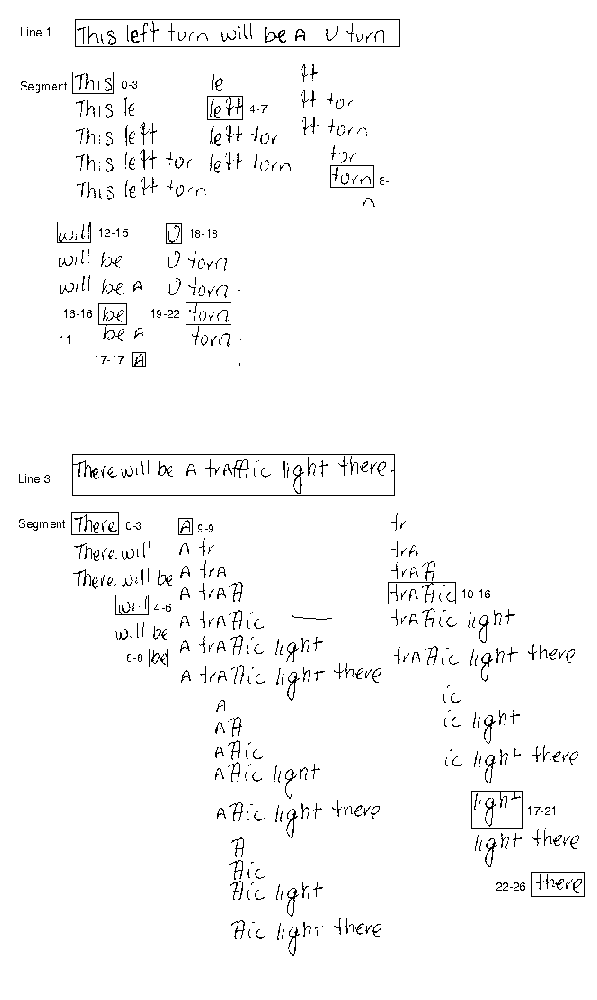 Line 1 This left turn will be A U turn
Segment This 0-3 le ft
This le left 4-7 ft tor
This left left tor ft torn
This left tor left torn tor
This left torn torn 8-
n
will 12-15 U 18-18
will be U torn
will be A U torn
16-16 be 19-22 torn
11 be A torn
17-17 A
Line 3 There will be A trAffic light there.
Segment There 0-3 A 9-9 tr
There will A tr trA
There will be A trA trAff
will 4-6 A trAff trAffic 10-16
will be A trAffic trAffic light
8-8 be A trAffic light trAffic light there
A trAffic light there ic
A ic light
Aff ic light there
Affic
Affic light light 17-21
Affic light there light there
ff 22-26 there
ffic
ffic light
ffic light there